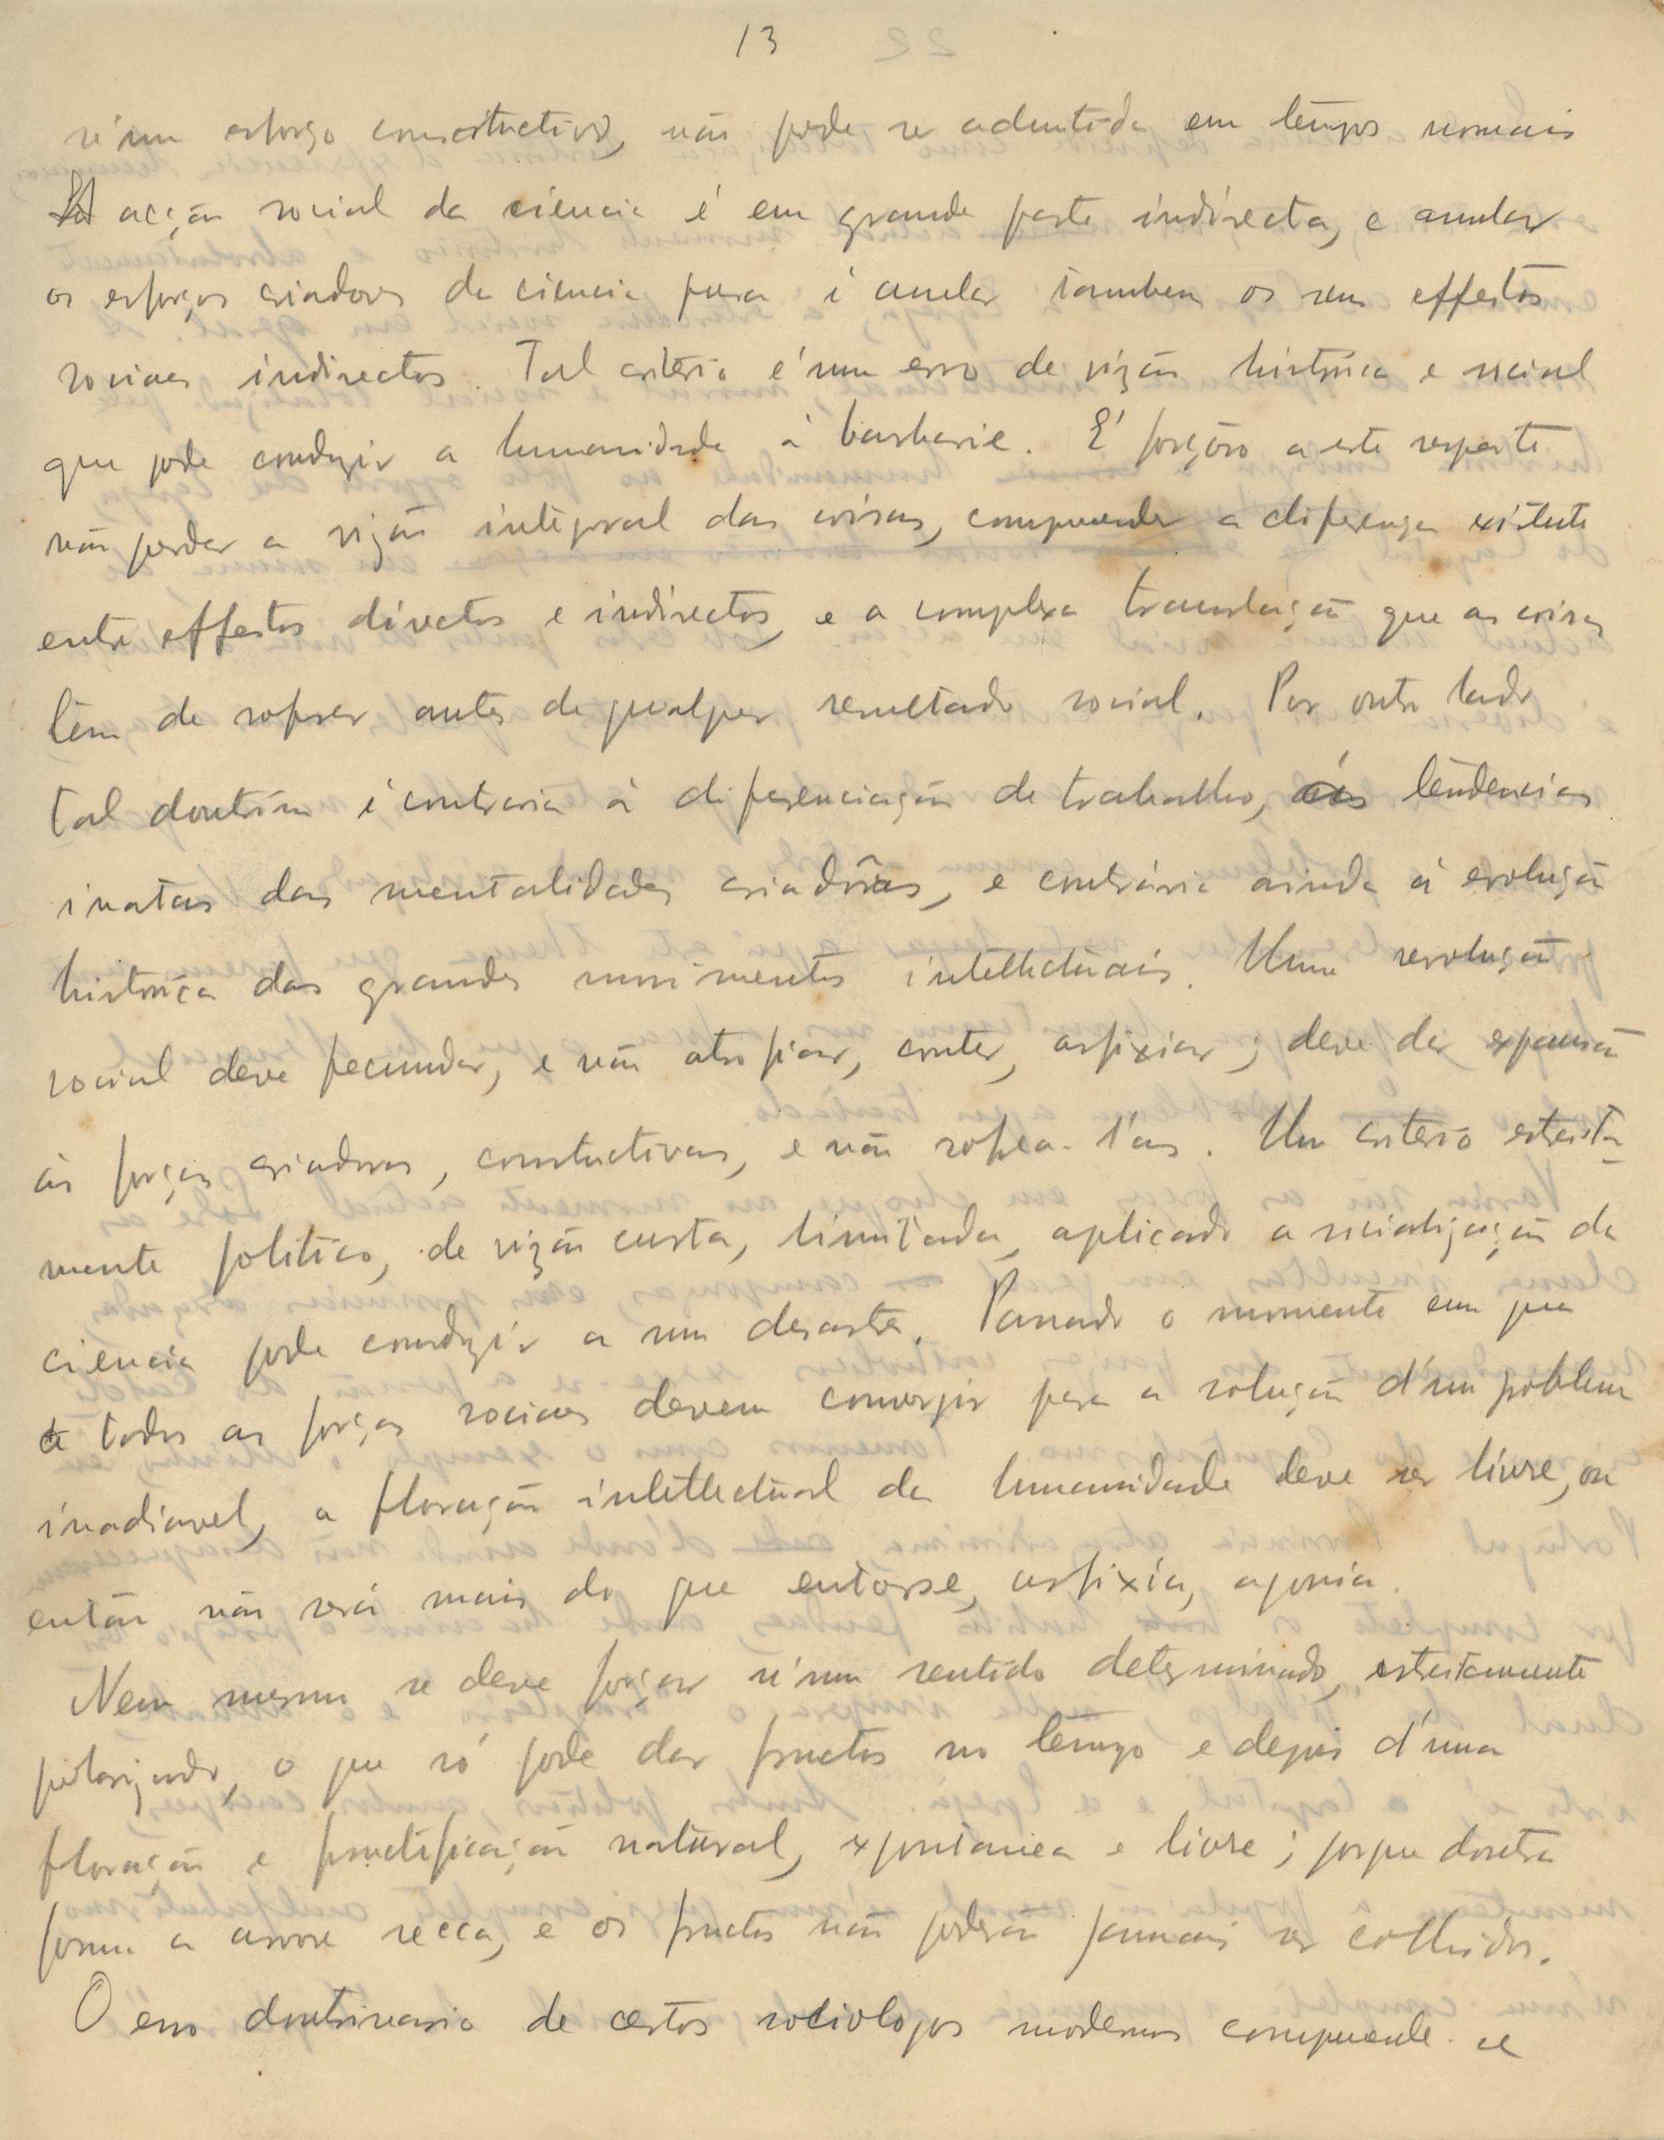 13
n'um esforço constructivo, não pode ser admitida em tempos normais
A acção social da ciencia é em grande parte indirecta, e anular
os esforços criadores da ciencia pura é anular tambem os seus effeitos
sociaes indirectos. Tal criterio é um erro de vizão histórica e social
que pode conduzir a humanidade á barbarie. É forçôso a este respeito
não perder a vizão integral das coisas, comprehender a diferença existente
entre effeitos directos e indirectos, e a complexa translação que as coisas
têm de sofrer antes de qualquer resultado social. Por outro lado
tal doutrina é contraria á diferenciação de trabalho, ás tendencias
inatas das mentalidades criadôras, e contrária ainda á evolução
histórica dos grandes movimentos intellectuais. Uma revolução
social deve fecundar, e não atrofiar, conter, asfixiar; deve dar expansão
ás forças criadoras, constructivas, e não sofrea-l'as. Um criterio estreita-
mente politico, de vizão curta, limitada, aplicado a socialização da
ciencia pode conduzir a um desastre. Passado o momento em que
todas as forças sociaes devem convergir para a solução d'um problema
inadiavel, a floração intellectual da humanidade deve ser livre, ou
então não será mais do que entorse, asfixia, agonia.
Nem mesmo se deve forçar n'um sentido determinado, estreitamente
, o que só pode dar fructos no tempo e depois d'uma
floração e fructificação natural, expontanea e livre; porque doutra
forma a arvore secca, e os fructos não poderão jamais ser colhidos.
O erro doutrinario de certos sociologos modernos comprehende-se